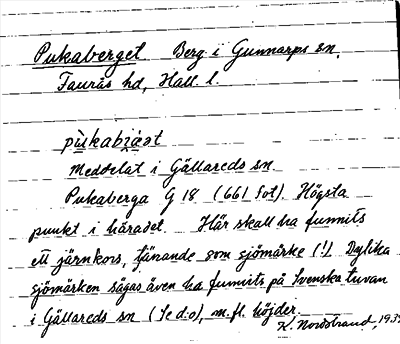 Pukaberget. Berg i Gunnarps sn,
Faurås hd, Hall. l.
pùkabiáət
Meddelat i Gällareds sn.
Pukaberga G 18 (661 fot). Högsta
punkt i häradet. Här skall ha funnits
ett järnkors, tjänande som sjömärke (!). Dylika
sjömärken sägas även ha funnits på Svenska tuvan
i Gällareds sn (Se d.o), m.fl. höjder.
K. Nordstrand, 193